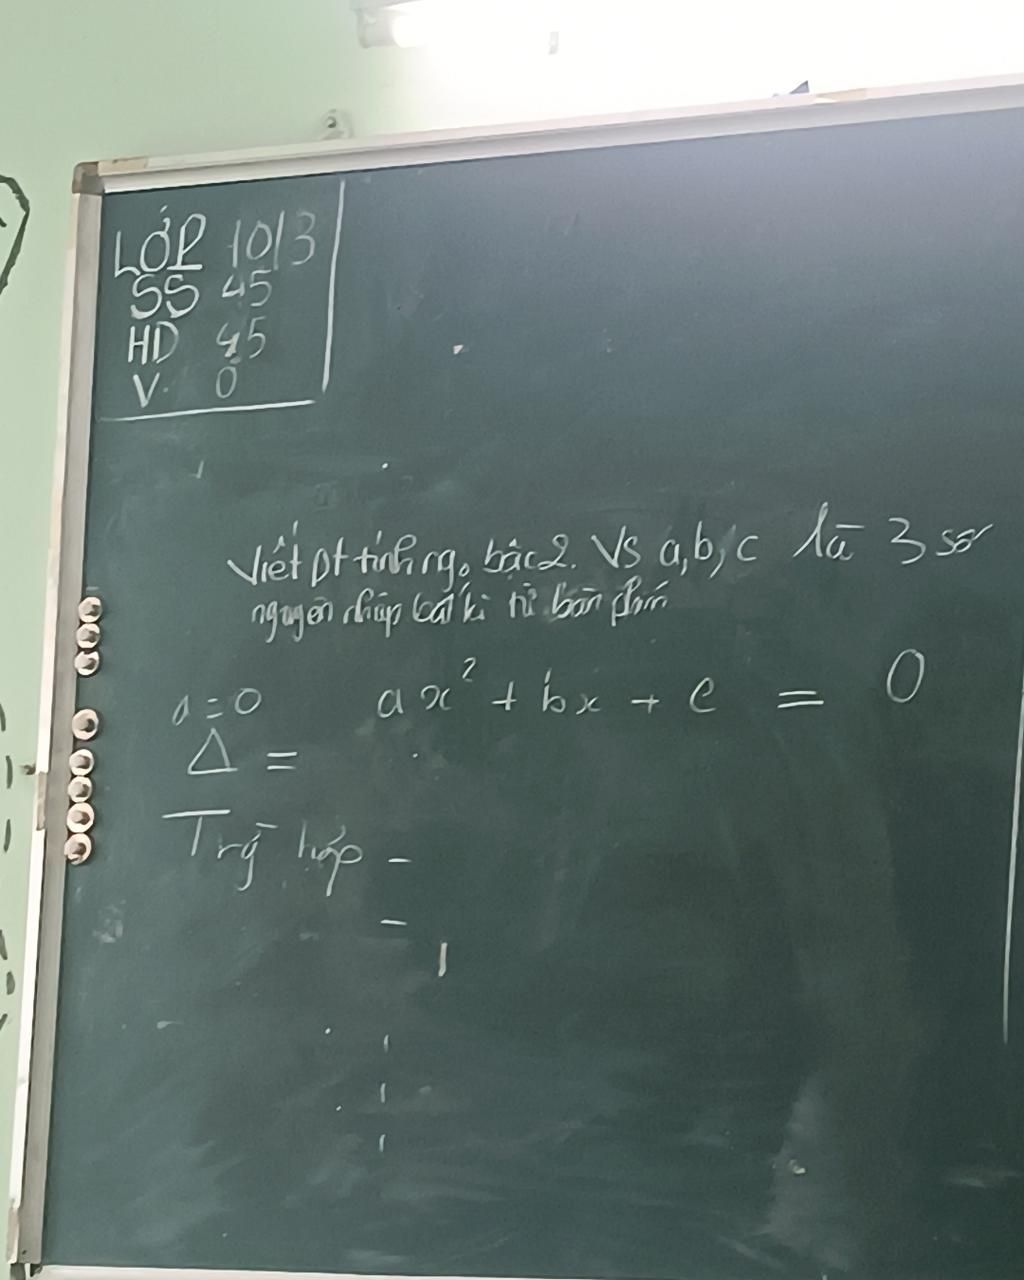 LỚP 10/3
SS 45
HD 45
V. 0
Viết pt tính ng. bậc 2. Vs a,b,c là 3 số
nguyên nhập bất kì từ bàn phím
a = 0 ax² + bx + c = 0
Δ =
Trg hợp -
-